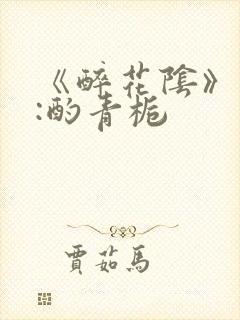 《醉花陰》
:酌青梔
賈茹馬